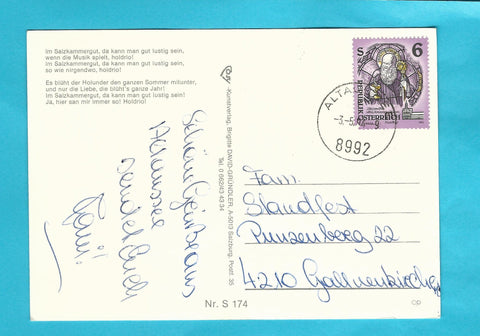 Im Salzkammergut, da kann man gut lustig sein,
wenn die Musik spielt, holdrio!
Im Salzkammergut, da kann man gut lustig sein,
so wie nirgendwo, holdrio!
Es blüht der Holunder den ganzen Sommer mitunter,
und nur die Liebe, die blüht's ganze Jahr!
Im Salzkammergut, da kann man gut lustig sein!
Ja, hier san mir immer so! Holdrio!
Schöne Grüße aus
sendet Euch
Kunstverlag, Brigitte DAVID-GRÜNDLER, A-5013 Salzburg, Postf. 35
Tel. 0 662/43 43 34
S 6
REPUBLIK
ÖSTERREICH
8992
Fam.
Standfest
Punzenberg 22
4210 Gallneukirchen
Nr. S 174